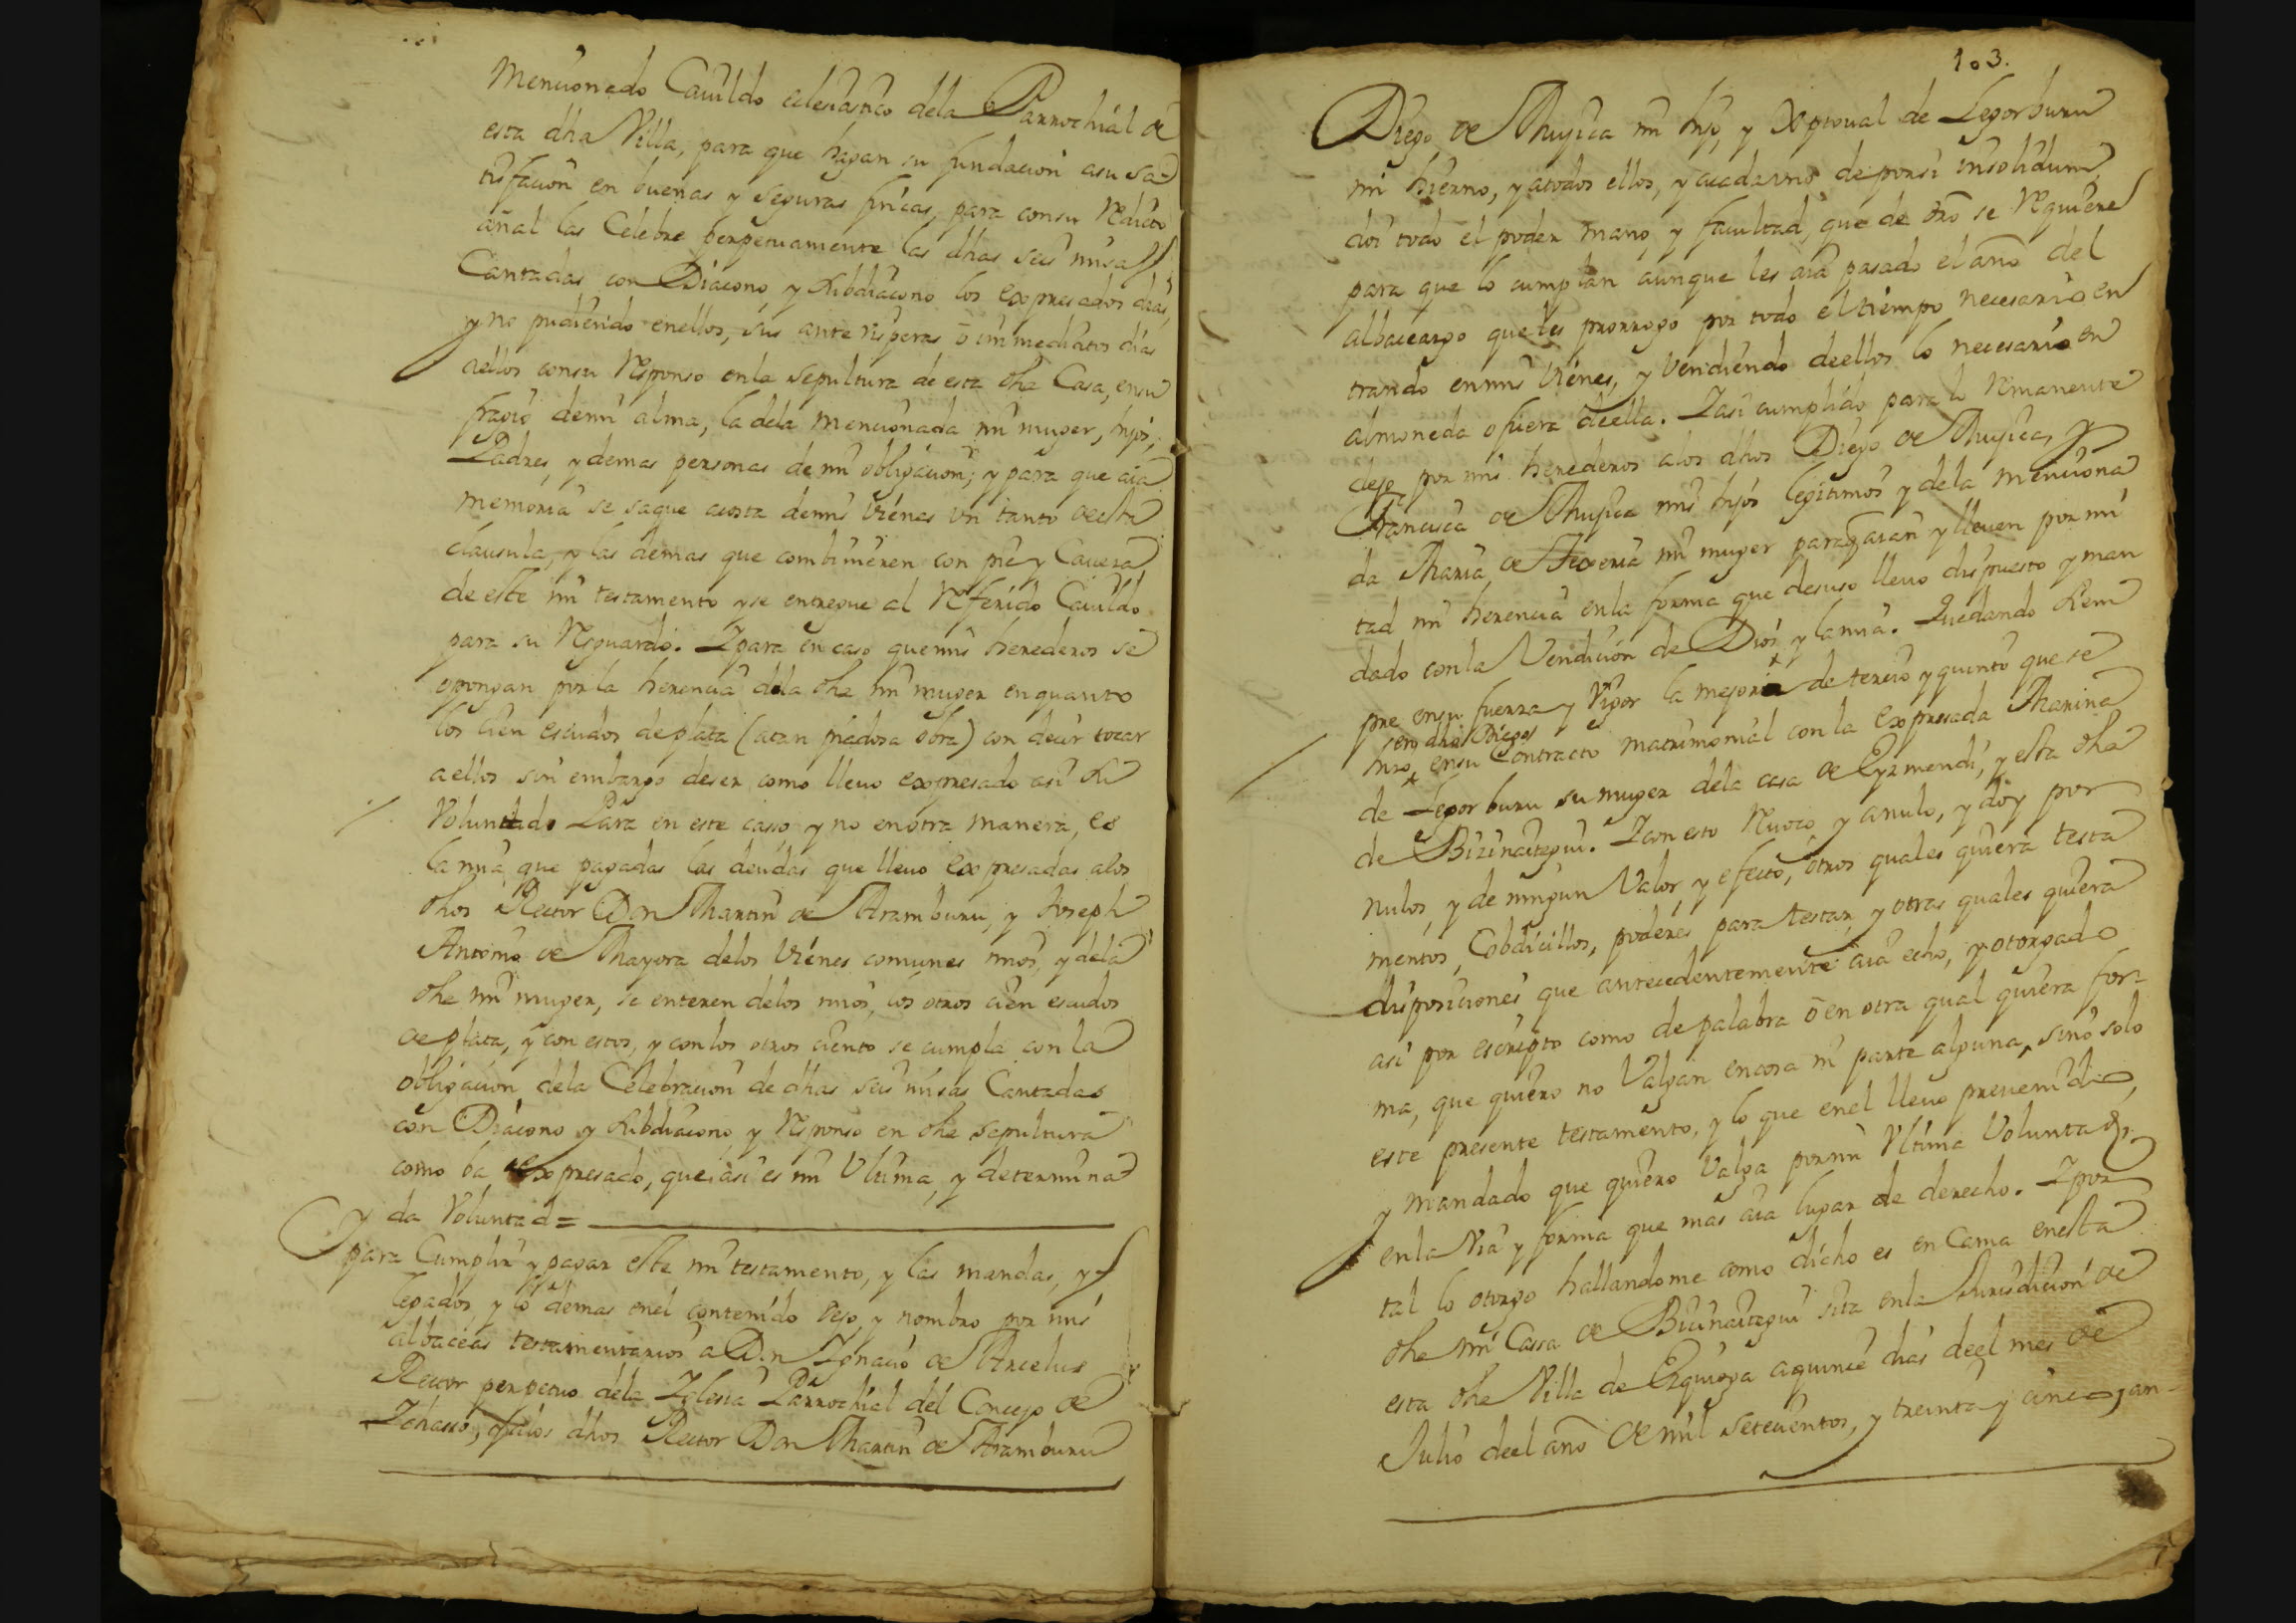 Mencionado Cauildo eclesiastico dela Parrochial de
esta dha Villa, para que hagan su fundacion asu sa-
tisfacion en buenas y seguras fincas, para consu Redito
añal las Celebre perpetuamente las dhas seis misas
Cantadas con Diacono y Subdiacono los expresados dias,
y no pudiendo enellos, sus ante visperas ô immediatos dias
aellos consu Responso enla sepultura de esta dha Casa, ensu
fragio demi alma, la dela mencionada mi muger, hijos,
Padres, y demas personas de mi obligacion; y para que aia
memoria se saque acosta demis vienes vn tanto de esta
clausula, y las demas que combinieren con pie y Caueza
de este mi testamento y se entregue al Referido Cauildo
para su Resguardo. Ypara en caso que mis herederos se
opongan por la herencia dela dha mi muger en quanto
los cien escudos de plata (atan piadosa obra) con decir tocar
a ellos sin embargo deser como lleuo expresado asi Su
Voluntad. Para en este casso y no en otra manera, es
la mia que pagadas las deudas que lleuo expresadas alos
dhos Rector Don Martin de Aramburu, y Joseph
Antonio de Mayora delos vienes comunes mios, y dela
dha mi muger, se enteren delos mios, los otros cien escudos
de plata, y con estos, y con los otros ciento se cumpla con la
obligacion dela Celebracion de dhas seis misas Cantadas
con Diacono y Subdiacono y Responso en dha sepultura
como ba expresado, que asi es mi Vltima, y determina
da Voluntad =
y para Cumplir y pagar este mi testamento, y las mandas, y
legados, y lo demas enel contenido dejo, y nombro por mis
albaceas testamentarios a Don Ignacio de Arcelus
Rector perpetuo dela Iglesia Parrochial del Concejo de
Ychasso, y alos dhos Rector Don Martin de Aramburu
103.
Diego de Mujica mi hijo, y Xptoual de Legorburu
mi hierno, y atodos ellos, y acadauno deporsi insolidum,
doi todo el poder mano y facultad, que de dro se Requiere
para que lo cumplan aunque les aia pasado el año del
albaceargo que les prorrogo por todo el tiempo necesario en
trando en mis vienes, y vendiendo deellos lo necesario en
almoneda o fuera deella. Yasi cumplido para lo Remanente
dejo por mis herederos alos dhos Diego de Mujica, y
Francisca de Mujica mis hijos legitimos y dela menciona
da Maria de mi muger paraq̃ aian y lleuen por mi
tad mi herencia enla forma que desuso lleuo dispuesto y man
dado con la Vendicion de Dios y la mia. Quedando siem
pre ensu fuerza y Vigor la mejoria de tercio y quinto que se
hizo ensu Contracto matrimonial con la expresada Marina
dho Diego
de Legorburu su muger dela casa de Eyzmendi, y esta dha
de Bizinaitegui. Y con esto Reuoco y anulo, y doy por
nulos, y de ningun Valor, y efecto, otros quales quiera testa
mentos, Cobdicillos, poderes para testar, y otras quales quiera
disposiciones que antecedentemente aia echo, y otorgado
asi por escripto como de palabra ô en otra qual quiera for-
ma, que quiero no Valgan en cosa ni parte alguna, sino solo
este presente testamento, y lo que enel lleuo preuenido,
y mandado que quiero Valga por mi Vltima Voluntad,
en la Via y forma que mas aia lugar de derecho. Ypor
tal lo otorgo hallandome como dicho es en Cama en esta
dha mi Cassa de Bicinaitegui sita enla Jurisdicion de
esta dha Villa de Ezquioga aquince dias deel mes de
Julio deel año de mil setecientos, y treinta y cinco, an-